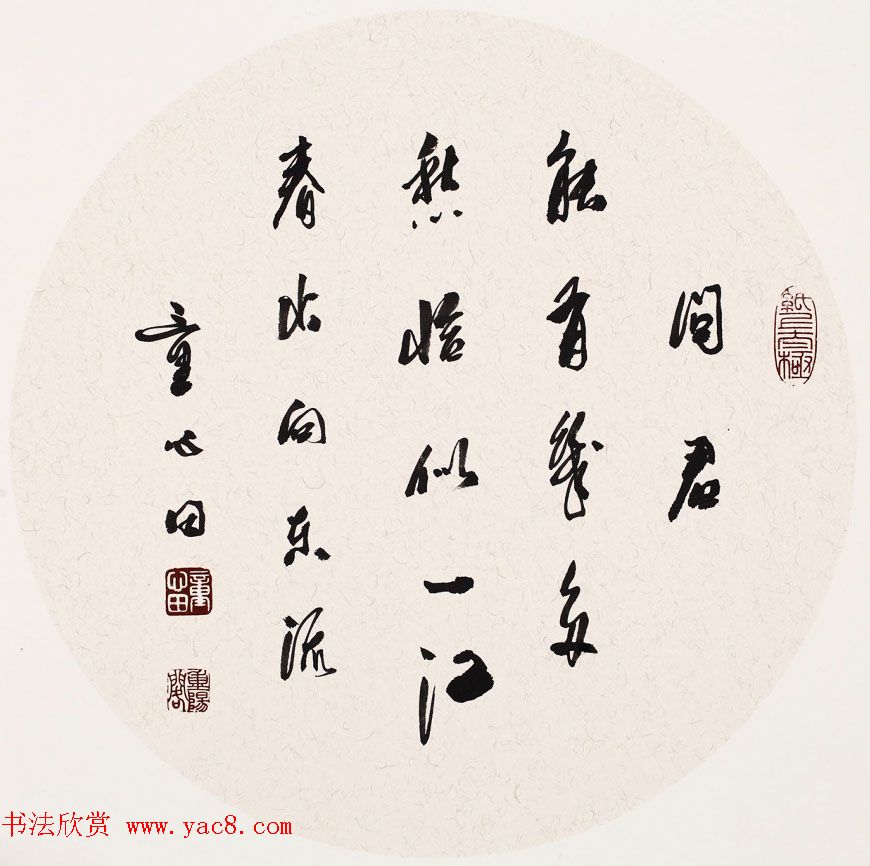 紙上太極
问君
能有幾多
愁恰似一江
春水向东流
童心田
童心田
书法欣赏 www.yac8.com